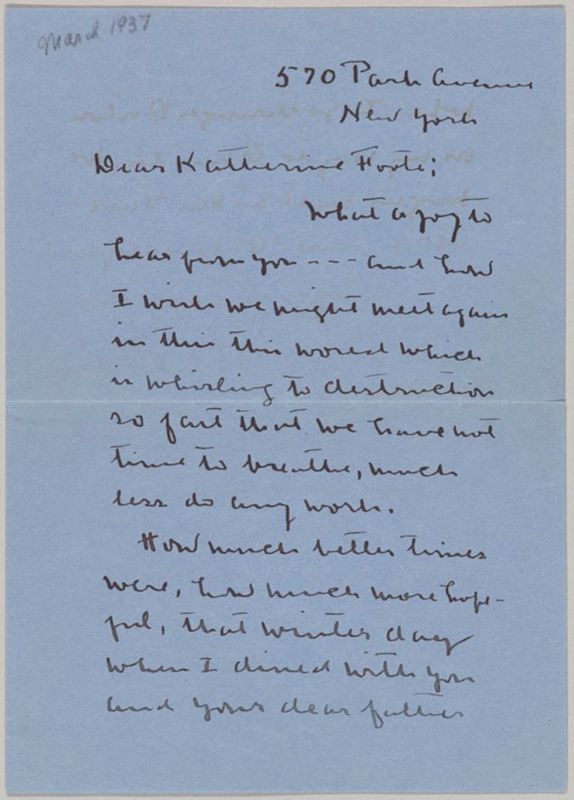 March 1937
570 Park Avenue
New York
Dear Katherine Foote;
What a joy to
hear from you --- and how
I wish we might meet again
in this this world which
is whirling to destruction
so fast that we have not
time to breathe, much
less do any work.
How much better times
were, how much more hope-
ful, that winter day
when I dined with you
and your dear father